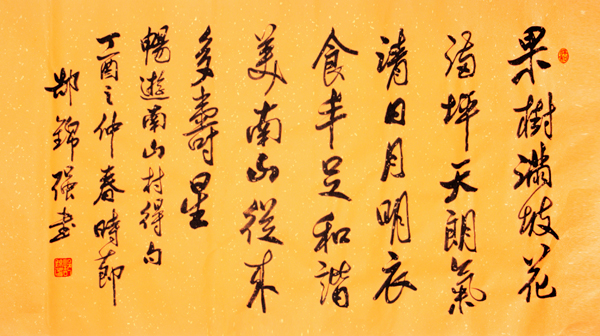 果樹滿坡花
满坪天朗氣
清日月明衣
食丰足和諧
美南山從来
多壽星
暢遊南山村得句
丁酉之仲春時節
郝錦强書